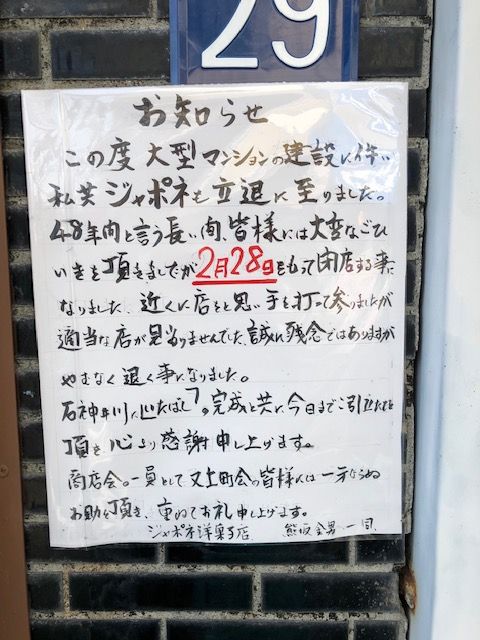 29
お知らせ
この度大型マンションの建設に伴い
私共ジャポネも立退に至りました。
48年間と言う長い間、皆様には大変なごひ
いきを頂きましたが2月28日をもって閉店する事に
なりました、近くに店をと思い手を打って参りましたが
適当な店が見当りませんでした、誠に残念ではありますが
やむなく退く事になりました。
石神井川に 完成と共に今日までご引立を
頂き心より感謝申し上げます。
商店会の一員として又上町会の皆様には一方ならぬ
お助を頂き、重ねてお礼申し上げます。
ジャポネ洋菓子店 熊坂金男 一同